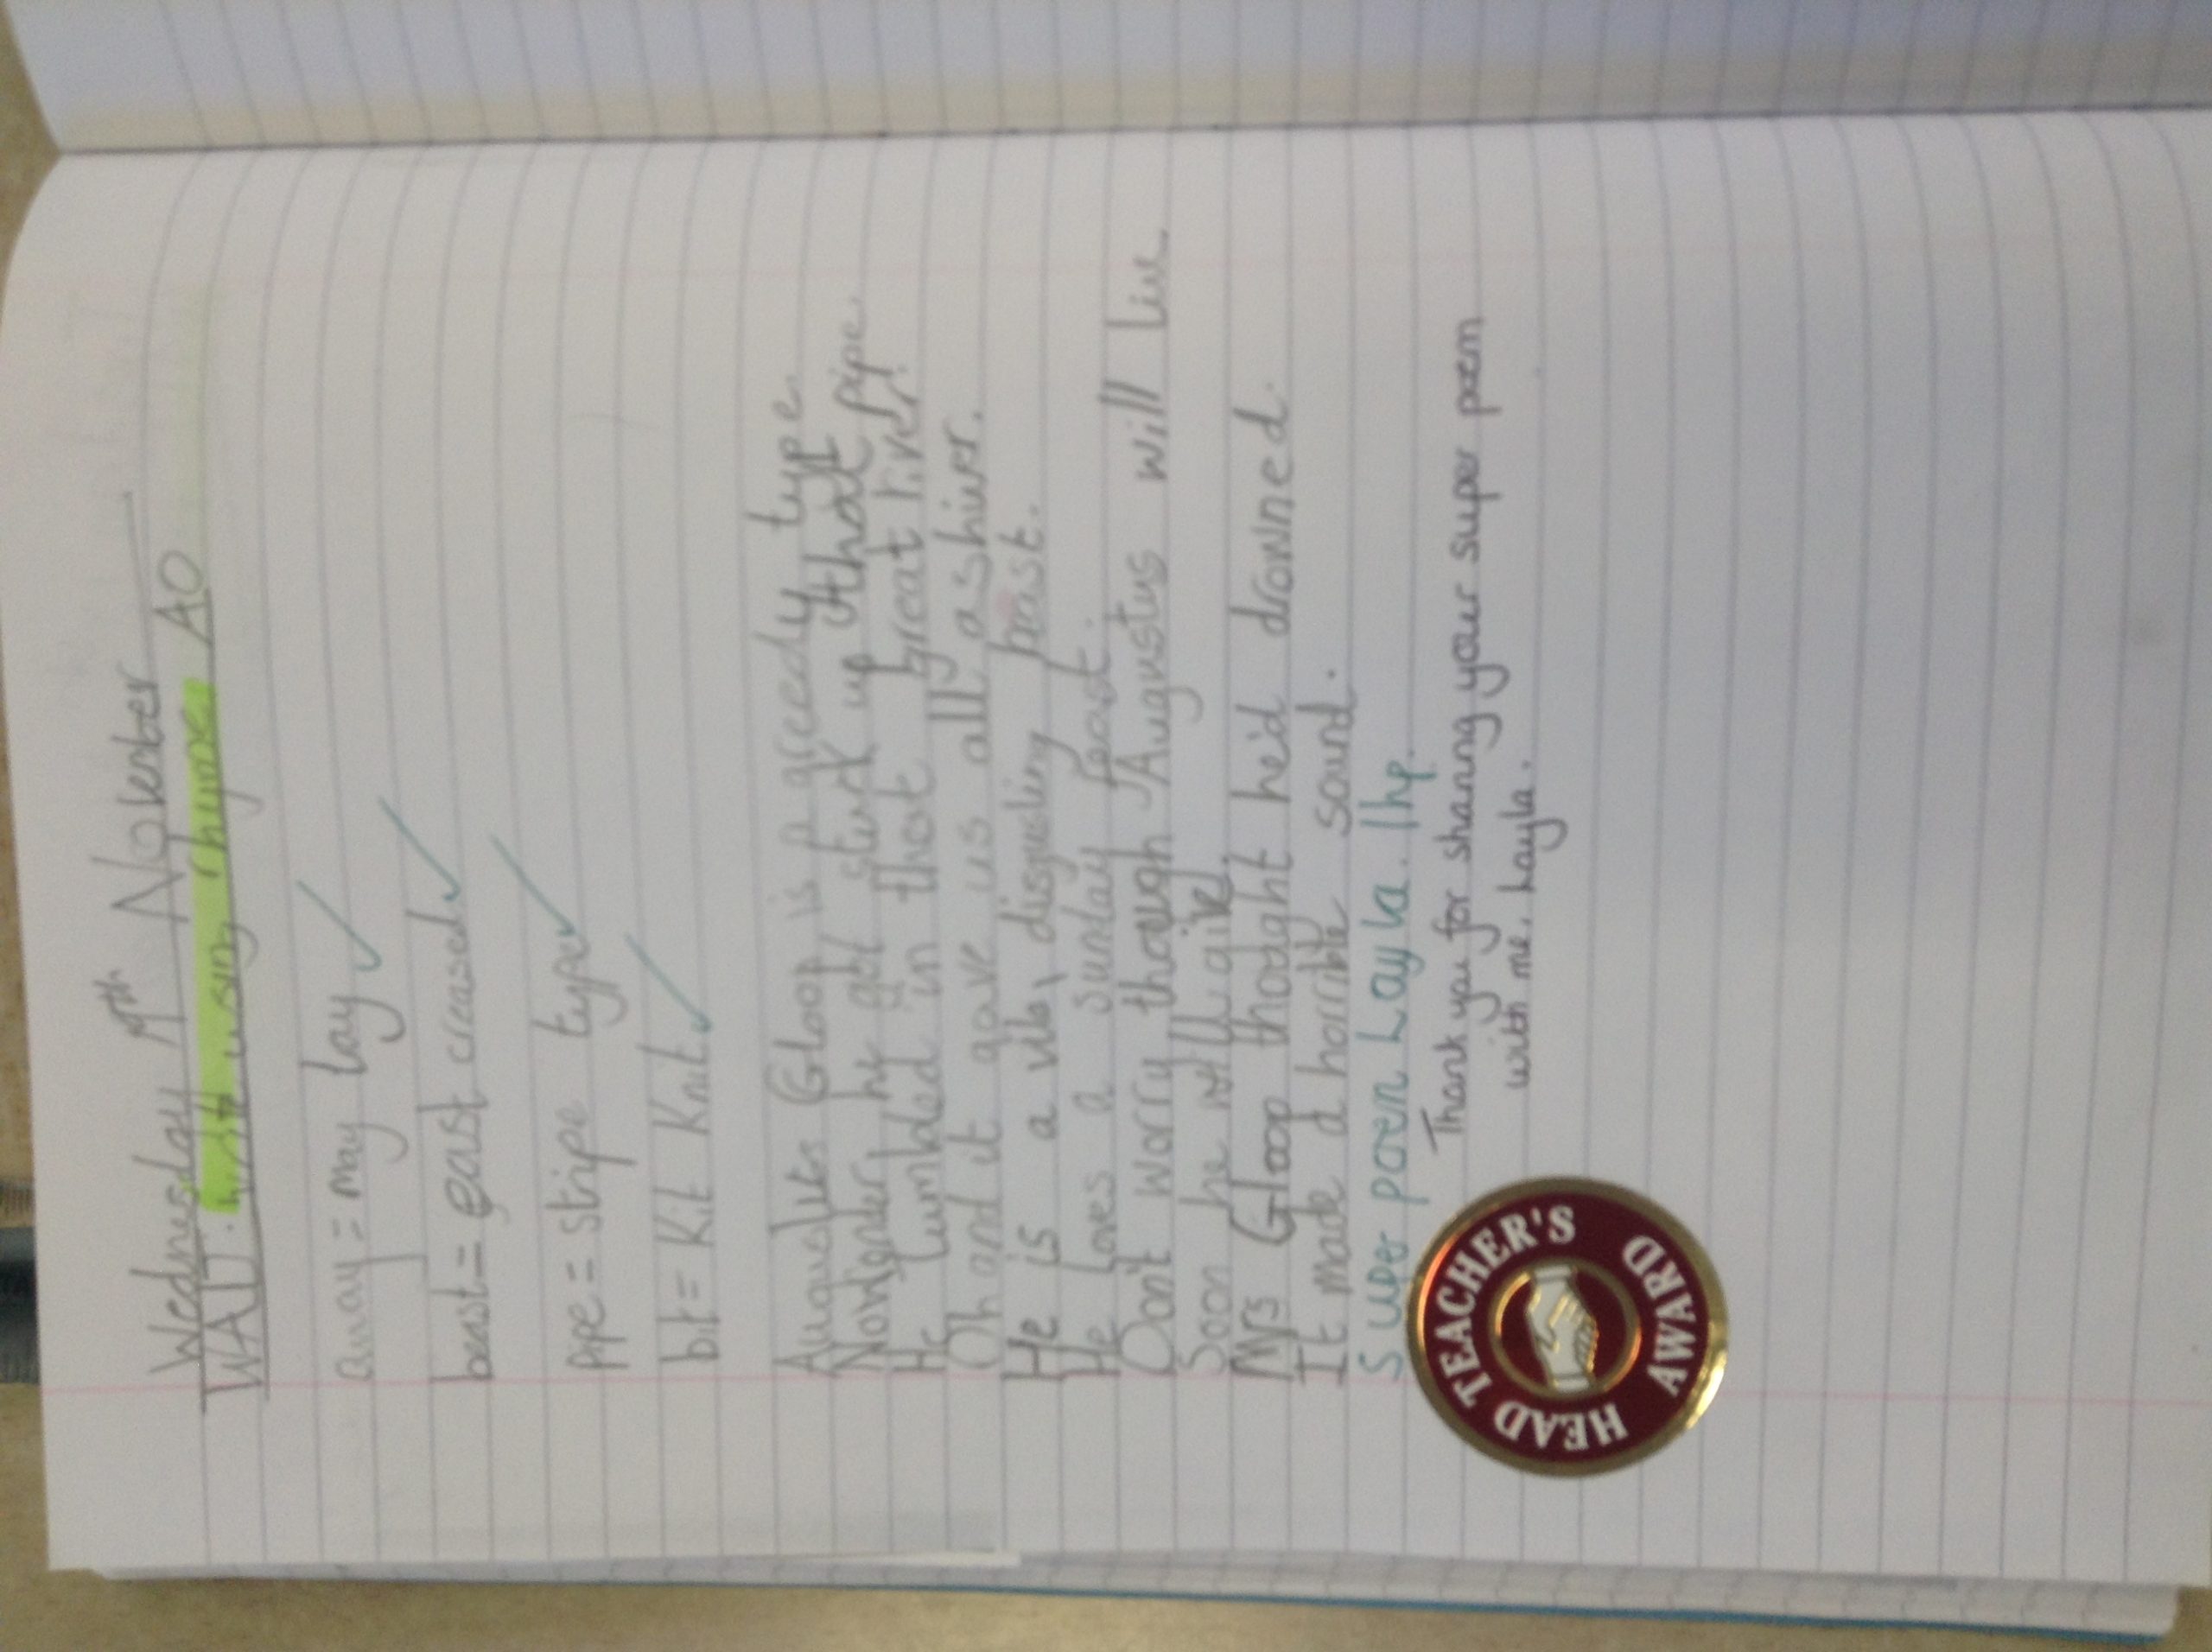 Wednesday 9th November
WALT: write using rhymes AO
away = may lay
beast = east creased
pipe = stripe type
bit = Kit Knit
Augustus Gloop is a greedy type
Nowonder he got stuck up that pipe.
He tumbled in that great river!
Oh and it gave us all ashiver.
He is a vile, disgusting beast.
He loves a sunday feast.
Don't worry though Augustus will live
Soon he will give
Mrs Gloop thought he'd drowned.
It made a horrible sound.
Super poem Layla. 1hp.
Thank you for sharing your super poem
with me, Layla.
HEAD TEACHER'S
AWARD